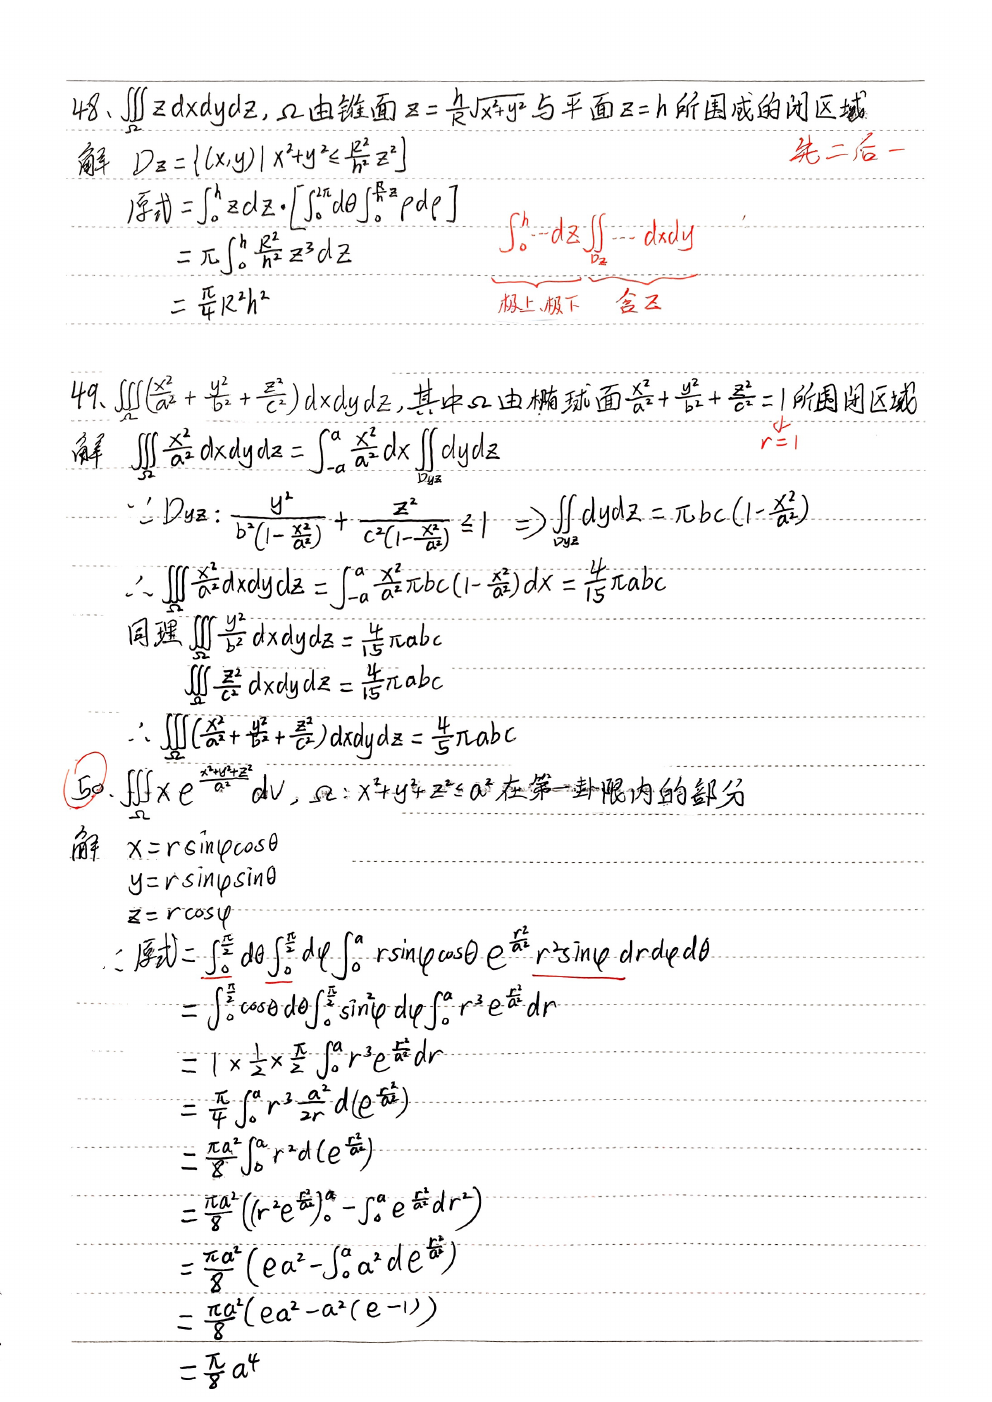 48、∭_Ω z dxdydz, Ω由锥面 z = h/R √(x²+y²) 与平面 z=h 所围成的闭区域
先二后一
解 Dz = {(x,y) | x²+y² ≤ R²/h² z²}
原式 = ∫₀^h z dz · [∫₀^{2π} dθ ∫₀^{R/h z} ρdρ]
∫₀^h ⋯ dz ∬_{Dz} ⋯ dxdy
= π ∫₀^h R²/h² z³ dz
= π/4 R²h²
极上、极下 含z
49、∭_Ω (x²/a² + y²/b² + z²/c²) dxdydz, 其中Ω由椭球面 x²/a² + y²/b² + z²/c² = 1 所围闭区域
r=1
解 ∭_Ω x²/a² dxdydz = ∫_{-a}^a x²/a² dx ∬_{Dyz} dydz
∵ Dyz: y²/(b²(1-x²/a²)) + z²/(c²(1-x²/a²)) ≤ 1 ⇒ ∬_{Dyz} dydz = πbc(1-x²/a²)
∴ ∭_Ω x²/a² dxdydz = ∫_{-a}^a x²/a² πbc(1-x²/a²) dx = 4/15 πabc
同理 ∭_Ω y²/b² dxdydz = 4/15 πabc
∭_Ω z²/c² dxdydz = 4/15 πabc
∴ ∭_Ω (x²/a² + y²/b² + z²/c²) dxdydz = 4/5 πabc
50、∭_Ω x e^{(x²+y²+z²)/a²} dv, Ω: x²+y²+z² ≤ a² 在第一卦限内的部分
解 x = r sinφ cosθ
y = r sinφ sinθ
z = r cosφ
∴ 原式 = ∫₀^{π/2} dθ ∫₀^{π/2} dφ ∫₀^a r sinφ cosθ e^{r²/a²} r² sinφ drdφdθ
= ∫₀^{π/2} cosθ dθ ∫₀^{π/2} sin²φ dφ ∫₀^a r³ e^{r²/a²} dr
= 1 × 1/2 × π/2 ∫₀^a r³ e^{r²/a²} dr
= π/4 ∫₀^a r³ a²/2r d(e^{r²/a²})
= πa²/8 ∫₀^a r² d(e^{r²/a²})
= πa²/8 ((r² e^{r²/a²})₀^a - ∫₀^a e^{r²/a²} dr²)
= πa²/8 (ea² - ∫₀^a a² de^{r²/a²})
= πa²/8 (ea² - a²(e-1))
= π/8 a⁴